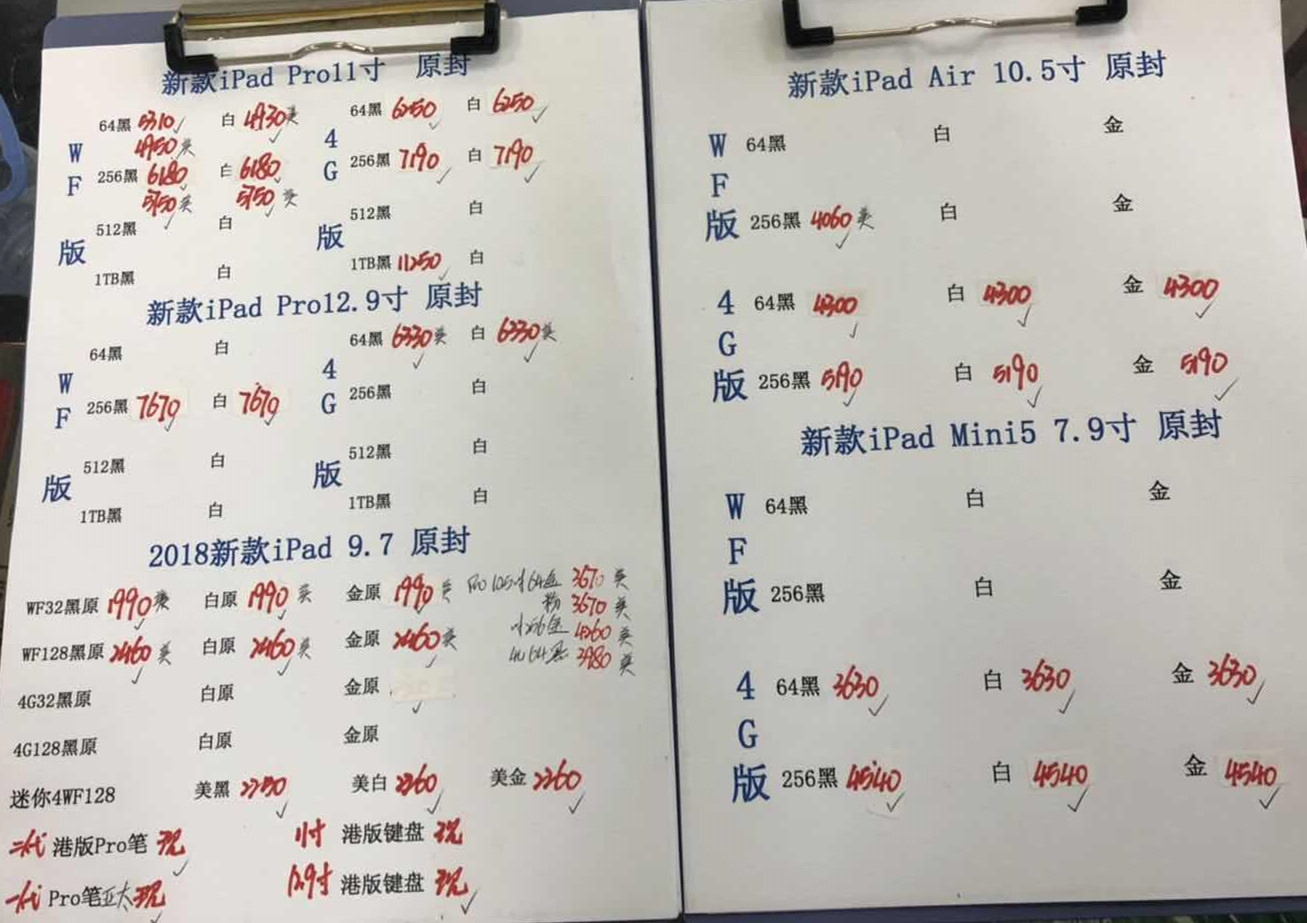 新款iPad Pro11寸 原封
WF版
64黑 5310 白 4930美
4950美
256黑 6180 白 6180
5750美 5750美
512黑 白
1TB黑 白
4G版
64黑 6250 白 6250
256黑 7190 白 7190
512黑 白
1TB黑 11250 白
新款iPad Pro12.9寸 原封
WF版
64黑 白
256黑 7670 白 7670
512黑 白
1TB黑 白
4G
版
64黑 6330美 白 6330美
256黑 白
512黑 白
1TB黑 白
2018新款iPad 9.7 原封
WF32黑原 1990美 白原 1990美 金原 1990美
WF128黑原 2460美 白原 2460美 金原 2460美
4G32黑原 白原 金原
4G128黑原 白原 金原
Pro 10.5寸64金 3670美
粉 3670美
寸256金 4260美
4G 64 3980美
迷你4WF128 美黑 美白 2260 美金 2260
二代 港版Pro笔 现 11寸 港版键盘 现
一代 Pro笔亚太现 12.9寸 港版键盘 现
新款iPad Air 10.5寸 原封
WF版
64黑 白 金
256黑 4060美 白 金
4G版
64黑 4300 白 4300 金 4300
256黑 5190 白 5190 金 5190
新款iPad Mini5 7.9寸 原封
WF版
64黑 白 金
256黑 白 金
4G版
64黑 3630 白 3630 金 3630
256黑 4540 白 4540 金 4540